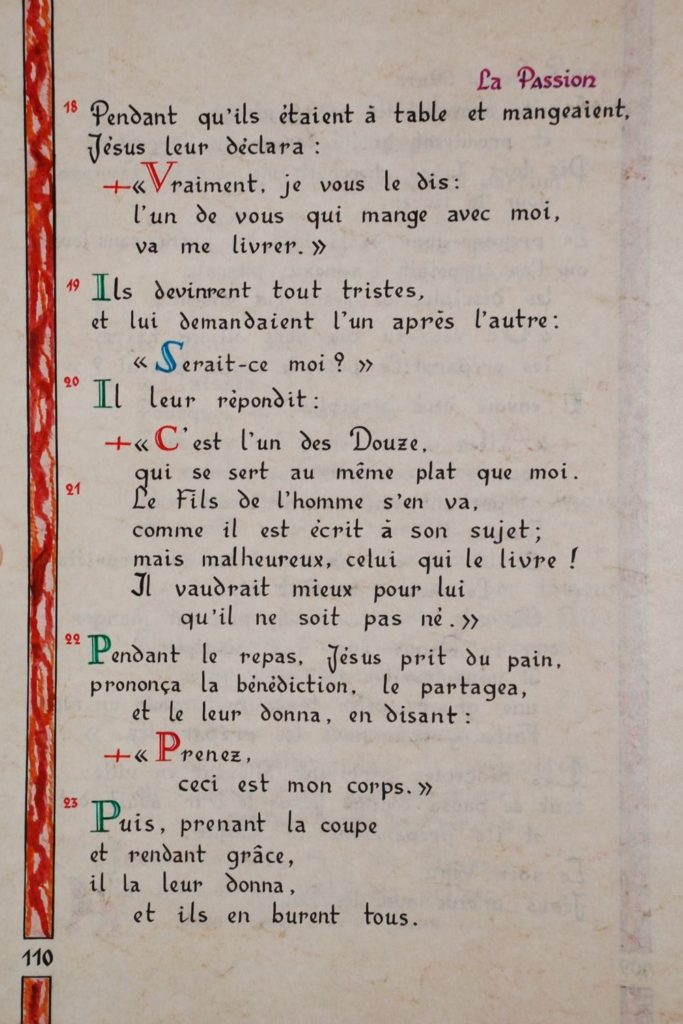 La Passion
18 Pendant qu'ils étaient à table et mangeaient,
Jésus leur déclara :
+« Vraiment, je vous le dis :
l'un de vous qui mange avec moi,
va me livrer. »
19 Ils devinrent tout tristes,
et lui demandaient l'un après l'autre :
« Serait-ce moi ? »
20 Il leur répondit :
+« C'est l'un des Douze,
qui se sert au même plat que moi.
21 Le Fils de l'homme s'en va,
comme il est écrit à son sujet ;
mais malheureux, celui qui le livre !
Il vaudrait mieux pour lui
qu'il ne soit pas né. »
22 Pendant le repas, Jésus prit du pain,
prononça la bénédiction, le partagea,
et le leur donna, en disant :
+« Prenez,
ceci est mon corps. »
23 Puis, prenant la coupe
et rendant grâce,
il la leur donna,
et ils en burent tous.
110